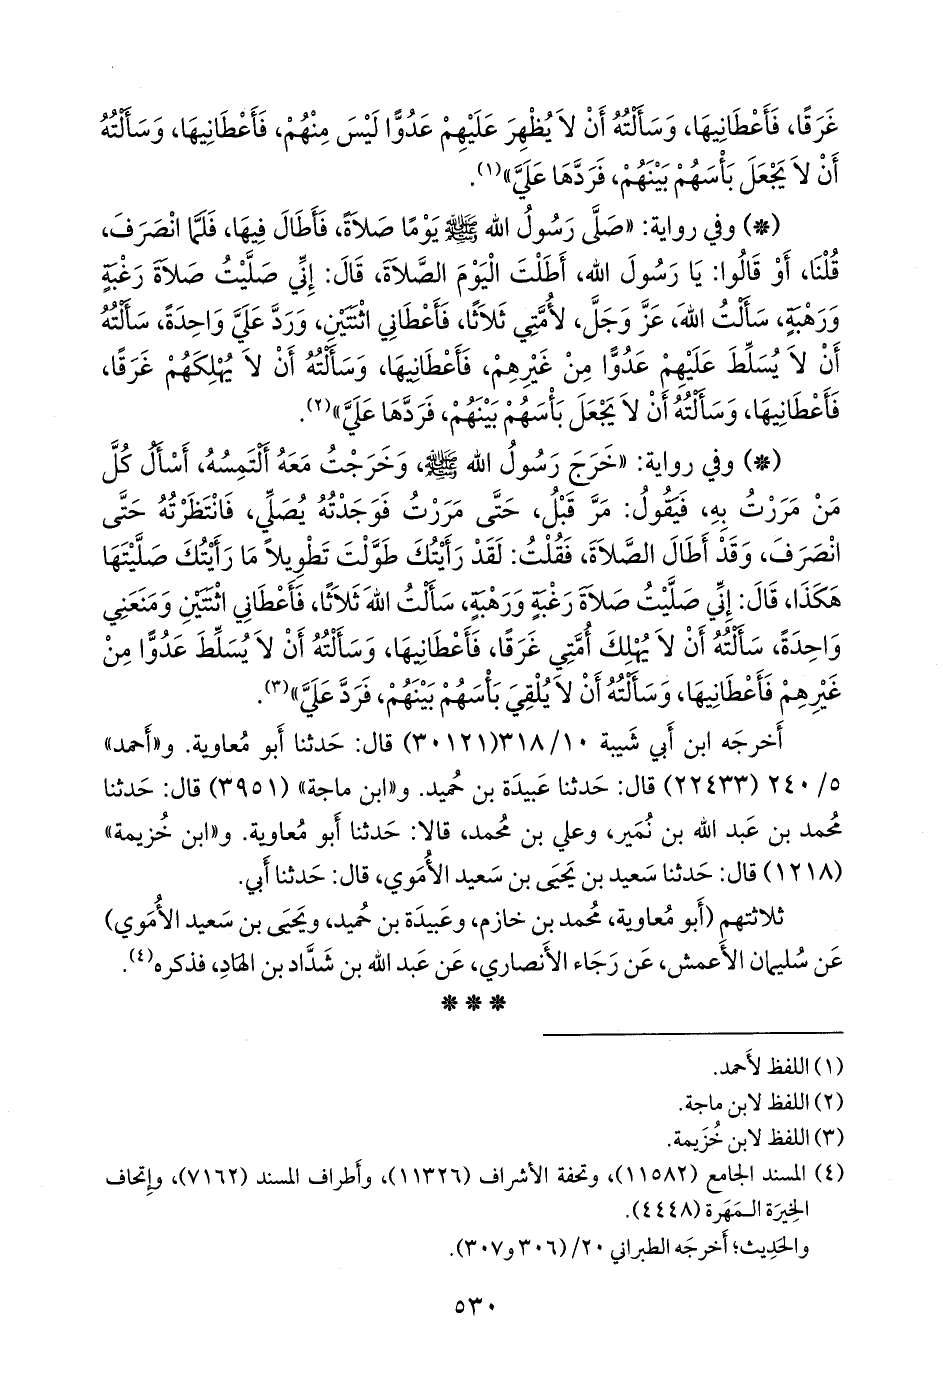 غَرَقًا، فَأَعْطَانِيهَا، وَسَأَلْتُهُ أَنْ لاَ يُظْهِرَ عَلَيْهِمْ عَدُوًّا لَيْسَ مِنْهُمْ، فَأَعْطَانِيهَا، وَسَأَلْتُهُ
أَنْ لاَ يَجْعَلَ بَأْسَهُمْ بَيْنَهُمْ، فَرَدَّهَا عَلَيَّ»(١).
(*) وفي رواية: «صَلَّى رَسُولُ الله ﷺ يَوْمًا صَلاَةً، فَأَطَالَ فِيهَا، فَلَمَّا انْصَرَفَ،
قُلْنَا، أَوْ قَالُوا: يَا رَسُولَ الله، أَطَلْتَ الْيَوْمَ الصَّلاَةَ، قَالَ: إِنِّي صَلَّيْتُ صَلاَةَ رَغْبَةٍ
وَرَهْبَةٍ، سَأَلْتُ اللهَ، عَزَّ وَجَلَّ، لأُمَّتِي ثَلاَثًا، فَأَعْطَانِي اثْنَتَيْنِ، وَرَدَّ عَلَيَّ وَاحِدَةً، سَأَلْتُهُ
أَنْ لاَ يُسَلِّطَ عَلَيْهِمْ عَدُوًّا مِنْ غَيْرِهِمْ، فَأَعْطَانِيهَا، وَسَأَلْتُهُ أَنْ لاَ يُهْلِكَهُمْ غَرَقًا،
فَأَعْطَانِيهَا، وَسَأَلْتُهُ أَنْ لاَ يَجْعَلَ بَأْسَهُمْ بَيْنَهُمْ، فَرَدَّهَا عَلَيَّ»(٢).
(*) وفي رواية: «خَرَجَ رَسُولُ الله ﷺ، وَخَرَجْتُ مَعَهُ أَلْتَمِسُهُ، أَسْأَلُ كُلَّ
مَنْ مَرَرْتُ بِهِ، فَيَقُولُ: مَرَّ قَبْلُ، حَتَّى مَرَرْتُ فَوَجَدْتُهُ يُصَلِّي، فَانْتَظَرْتُهُ حَتَّى
انْصَرَفَ، وَقَدْ أَطَالَ الصَّلاَةَ، فَقُلْتُ: لَقَدْ رَأَيْتُكَ طَوَّلْتَ تَطْوِيلاً مَا رَأَيْتُكَ صَلَّيْتَهَا
هَكَذَا، قَالَ: إِنِّي صَلَّيْتُ صَلاَةَ رَغْبَةٍ وَرَهْبَةٍ، سَأَلْتُ اللهَ ثَلاَثًا، فَأَعْطَانِي اثْنَتَيْنِ وَمَنَعَنِي
وَاحِدَةً، سَأَلْتُهُ أَنْ لاَ يُهْلِكَ أُمَّتِي غَرَقًا، فَأَعْطَانِيهَا، وَسَأَلْتُهُ أَنْ لاَ يُسَلِّطَ عَدُوًّا مِنْ
غَيْرِهِمْ فَأَعْطَانِيهَا، وَسَأَلْتُهُ أَنْ لاَ يُلْقِيَ بَأْسَهُمْ بَيْنَهُمْ، فَرَدَّ عَلَيَّ»(٣).
أَخرجَه ابن أَبي شَيبة ١٠/ ٣١٨(٣٠١٢١) قال: حَدثنا أَبو مُعاوية. و«أَحمد»
٥/ ٢٤٠ (٢٢٤٣٣) قال: حَدثنا عَبيدَة بن حُميد. و«ابن ماجة» (٣٩٥١) قال: حَدثنا
مُحمد بن عَبد الله بن نُمَير، وعلي بن مُحمد، قالا: حَدثنا أَبو مُعاوية. و«ابن خُزيمة»
(١٢١٨) قال: حَدثنا سَعيد بن يَحيَى بن سَعيد الأُمَوي، قال: حَدثنا أَبي.
ثلاثتهم (أَبو مُعاوية، مُحمد بن خازم، وعَبيدَة بن حُميد، ويَحيَى بن سَعيد الأُمَوي)
عَن سُليمان الأَعمش، عَن رَجَاء الأَنصاري، عَن عَبد الله بن شَدَّاد بن الهَادِ، فذكره(٤).
* * *
(١) اللفظ لأَحمد.
(٢) اللفظ لابن ماجة.
(٣) اللفظ لابن خُزَيمة.
(٤) المسند الجامع (١١٥٨٢)، وتحفة الأشراف (١١٣٢٦)، وأَطراف المسند (٧١٦٢)، وإتحاف
الخِيرَة الـمَهَرة (٤٤٤٨).
والحَدِيث؛ أَخرجَه الطبراني ٢٠/ (٣٠٦ و٣٠٧).
٥٣٠